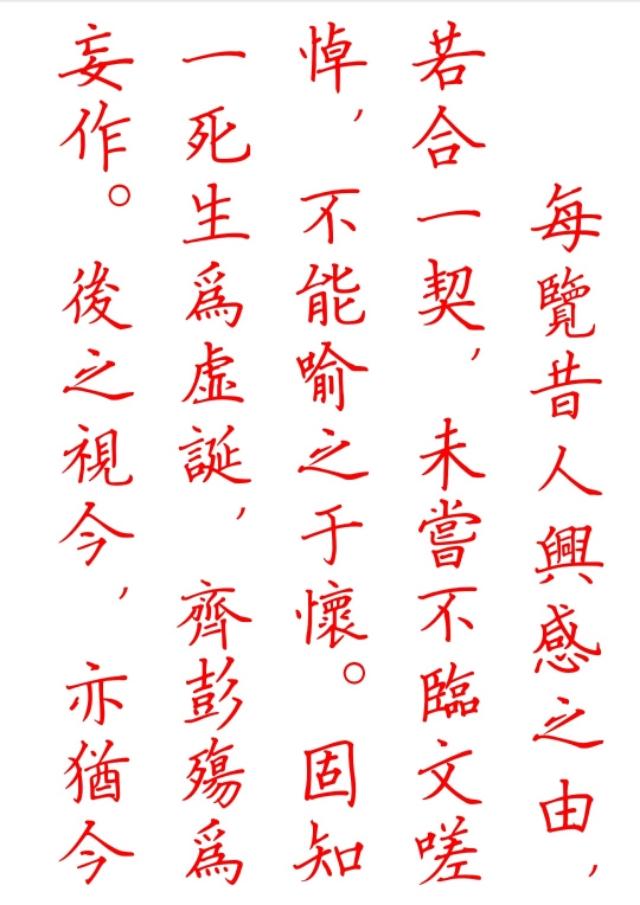 每覽昔人興感之由，
若合一契，未嘗不臨文嗟
悼，不能喻之于懷。固知
一死生爲虛誕，齊彭殤爲
妄作。後之視今，亦猶今